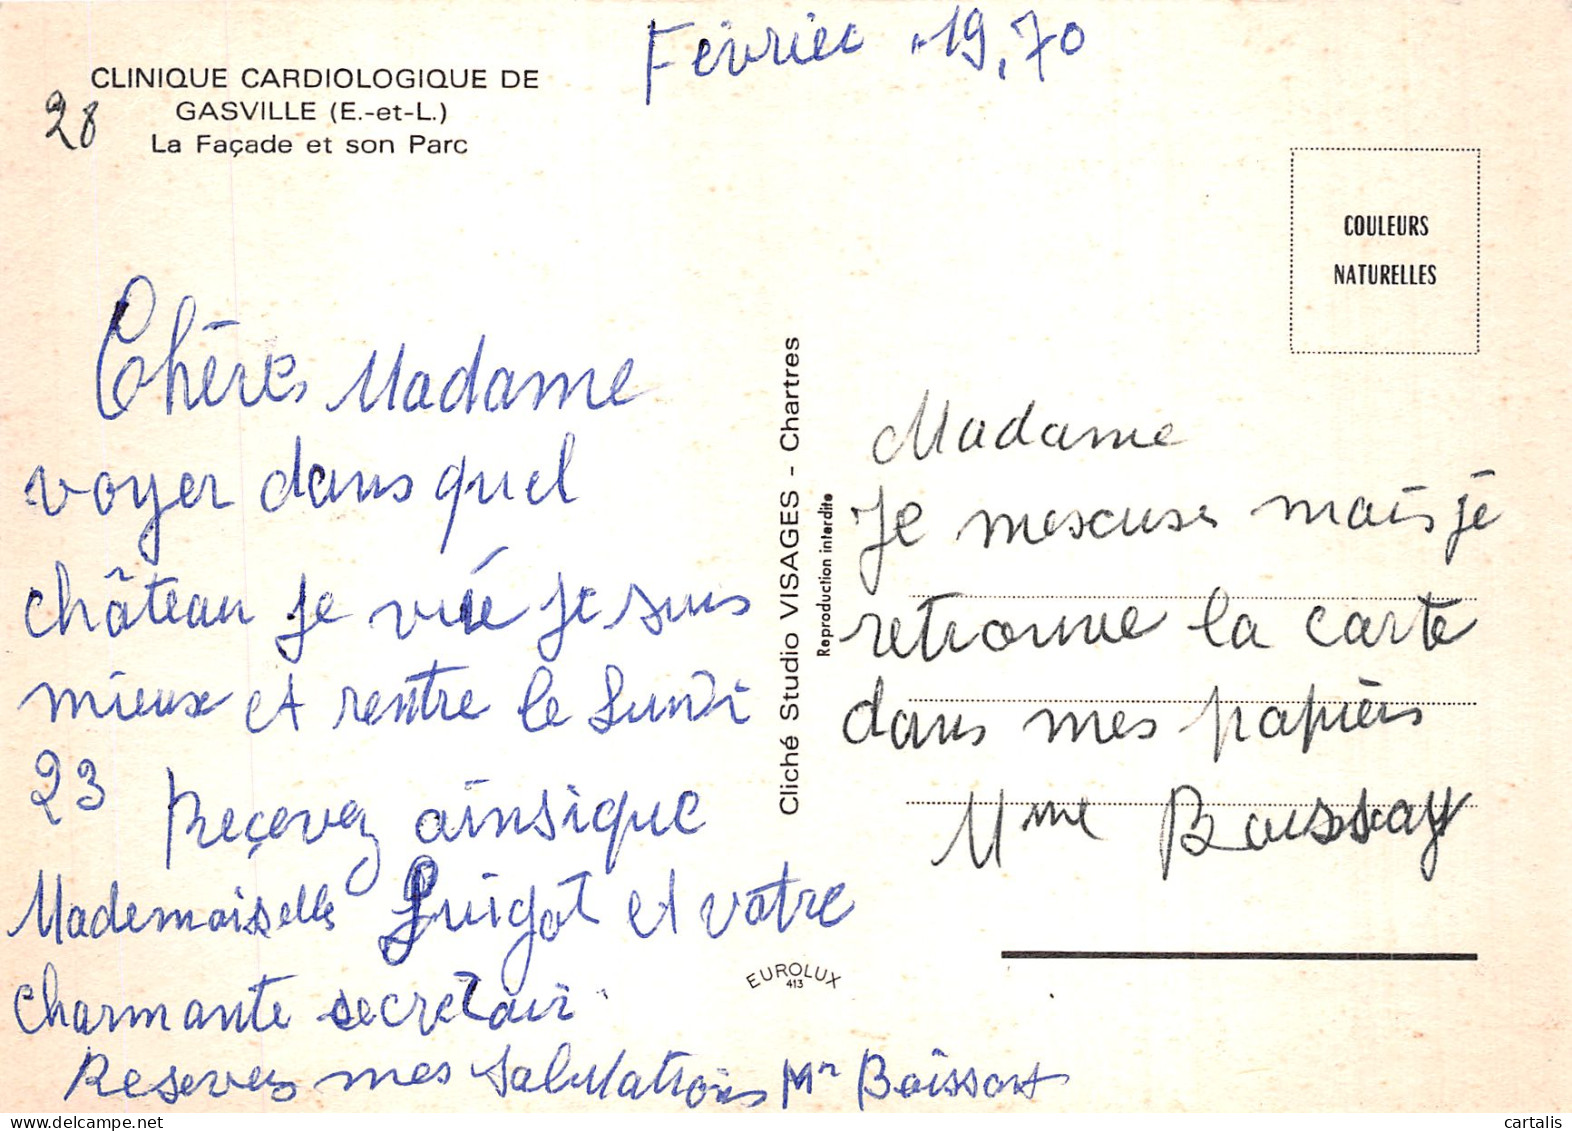 Fevrier 1970
CLINIQUE CARDIOLOGIQUE DE
GASVILLE (E.-et-L.)
28
La Façade et son Parc
COULEURS
NATURELLES
Chères Madame
voyer dans quel
château je vie je suis
mieux et rentre le Lundi
23 Reçevez ainsique
Mademoiselle Guigot et votre
charmante secretair
Resevez mes salutations Mr
Cliché Studio VISAGES - Chartres
Reproduction interdite
EUROLUX
413
Madame
Je mescuse mais je
retrouve la carte
dans mes papiers
Mme
cartalis